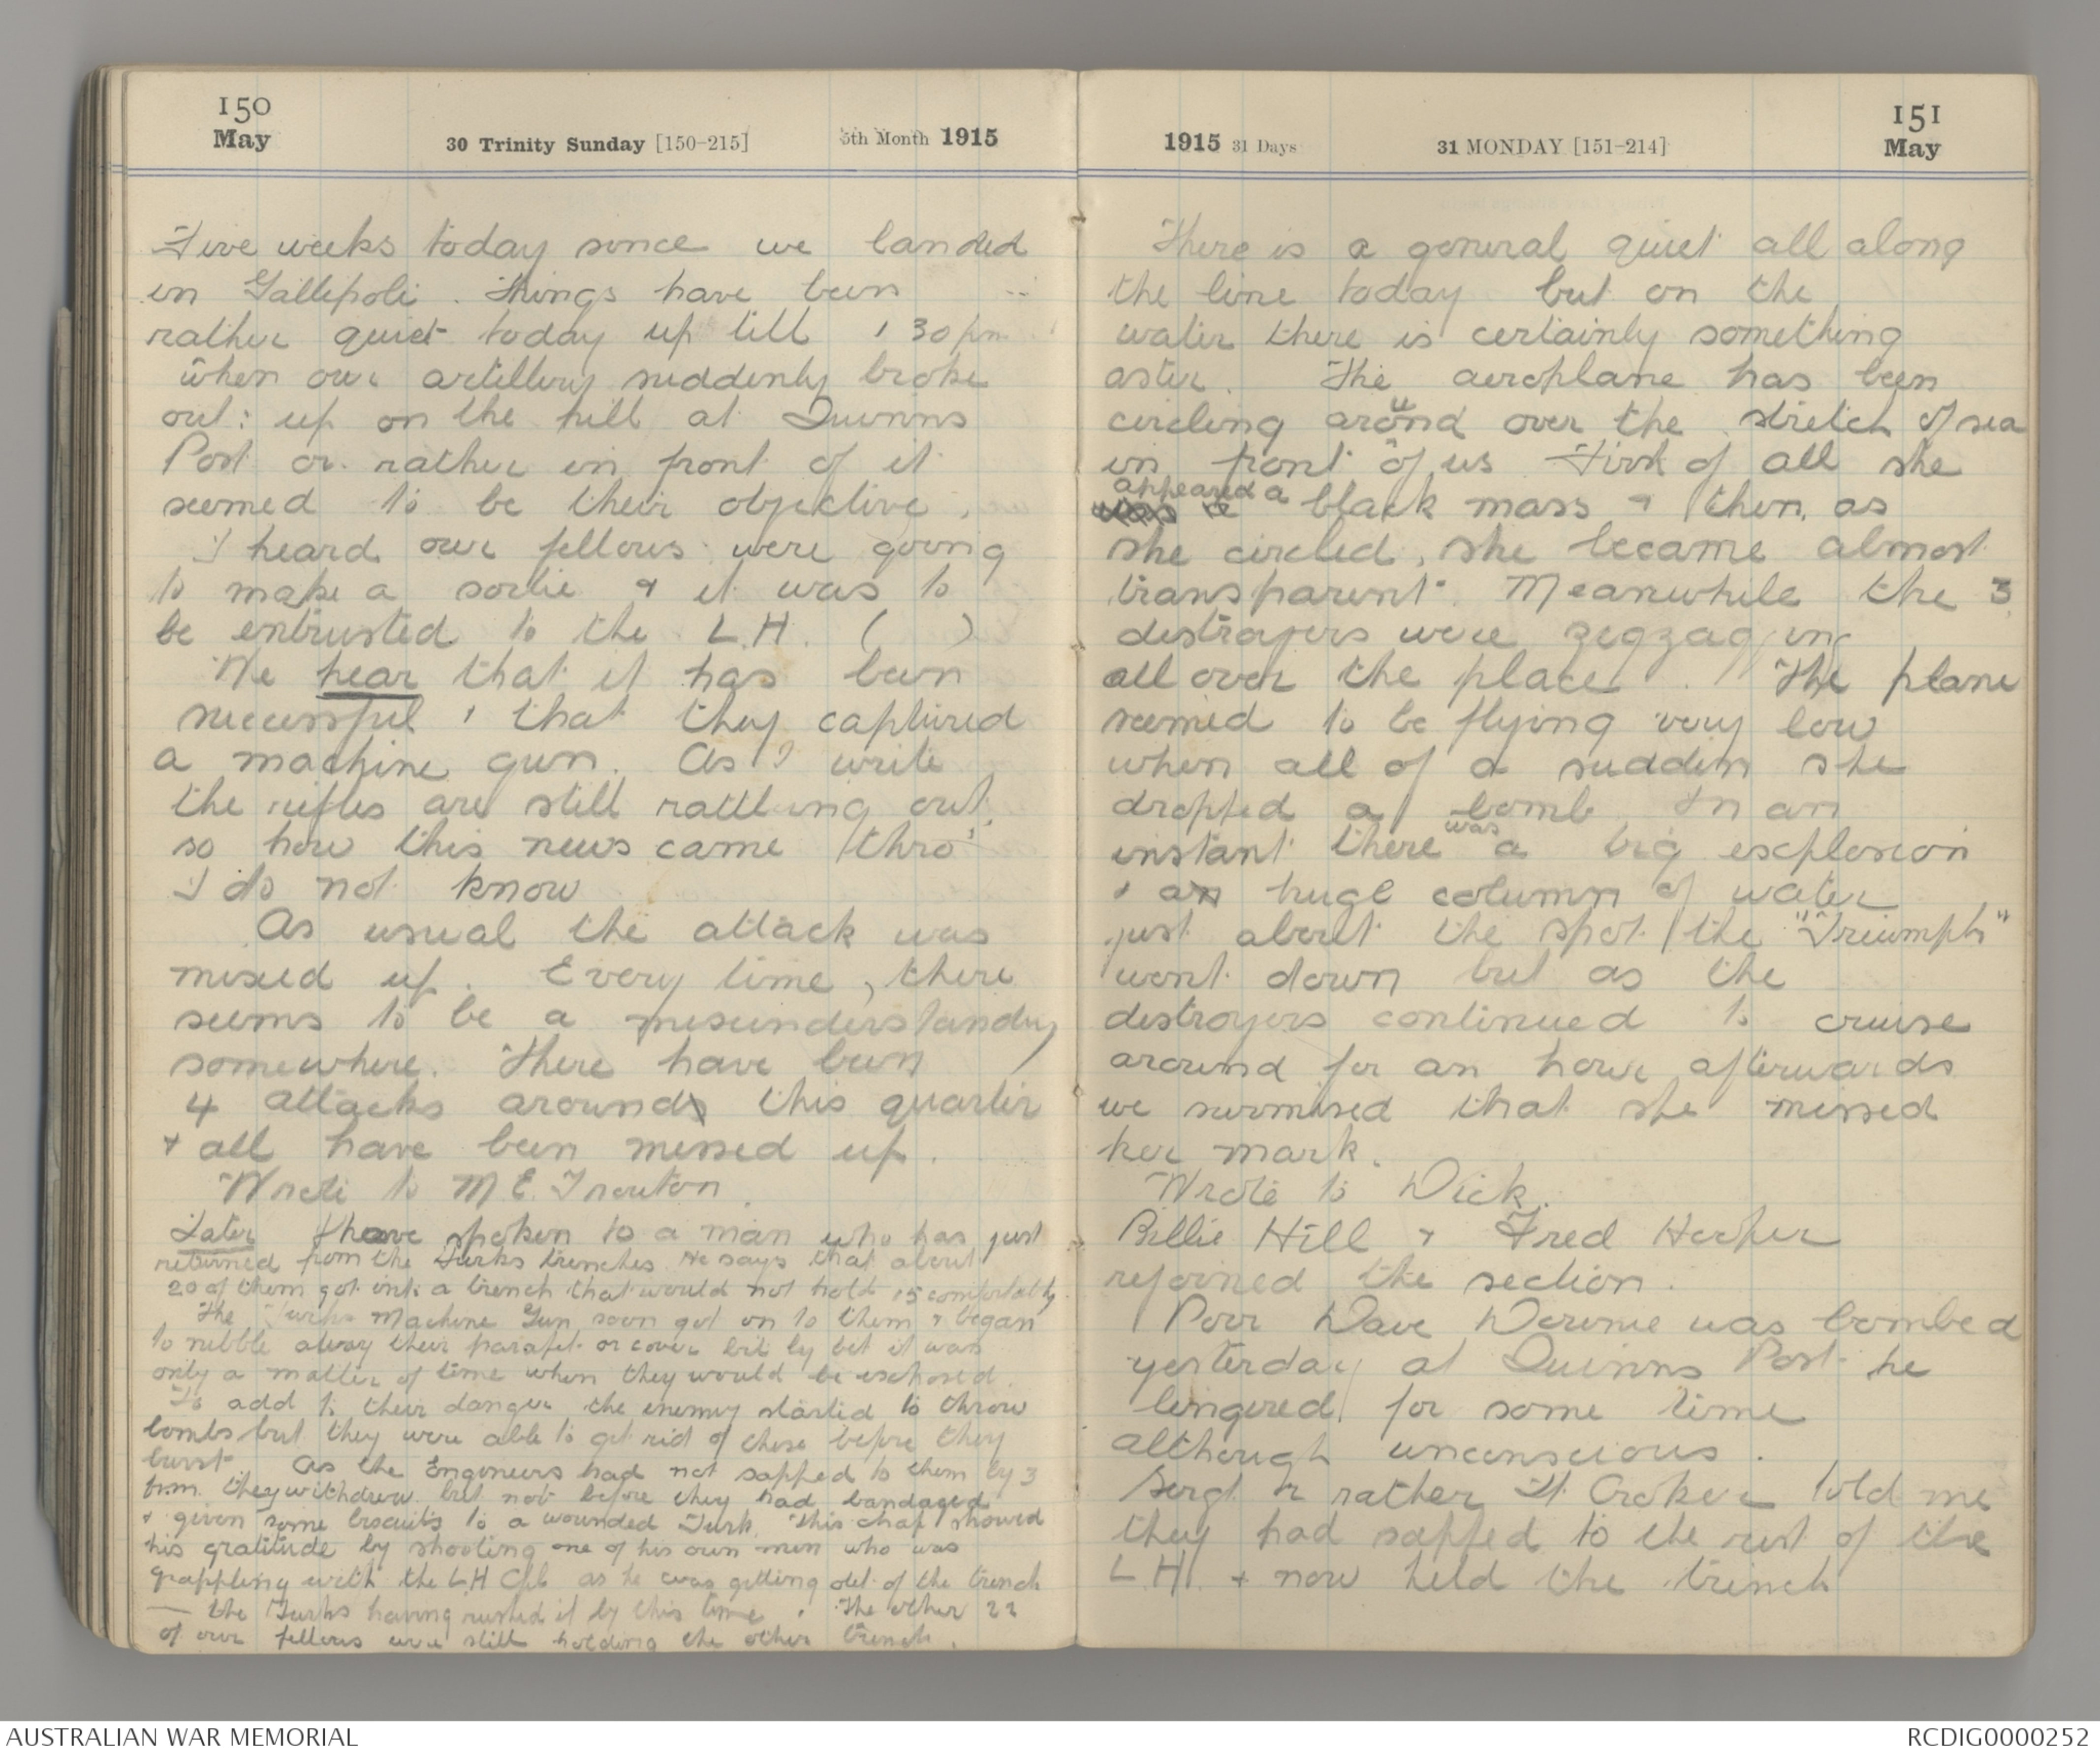 150
May
30 Trinity Sunday [150-215]
5th Month 1915
Five weeks today since we landed
in Gallipoli. Things have been
rather quiet today up till 1 30 pm
when our artillery suddenly broke
out: up on the hill at Quinns
Post or rather in front of it
seemed to be their objective.
I heard our fellows were going
to make a sortie & it was to
be entrusted to the L.H. ( )
We hear that it has been
successful & that they captured
a machine gun. As I write
the rifles are still rattling out,
so how this news came thro'
I do not know
As usual the attack was
mixed up. Every time, there
seems to be a misunderstanding
somewhere. There have been
4 attacks around this quarter
& all have been messed up.
Wrote to M E.
Later I have spoken to a man who has just
returned from the Turks trenches. He says that about
20 of them got into a trench that would not hold 15 comfortably.
The Turks Machine Gun soon got on to them & began
to nibble away their parapet or cover bit by bit it was
only a matter of time when they would be exposed.
To add to their danger the enemy started to throw
bombs but they were able to get rid of these before they
burst. As the Engineers had not sapped to them by 3
they withdrew but not before they had bandaged
& given some biscuits to a wounded Turk. This chap showed
his gratitude by shooting one of his own men who was
grappling with the L.H Cpl as he was getting out of the trench
— the Turks having rushed it by this time. The other 22
of our fellows were still holding the other trench.
1915 31 Days
31 MONDAY [151-214]
151
May
There is a general quiet all along
the line today but on the
water there is certainly something
astir. The aeroplane has been
circling around over the stretch of sea
in front of us First of all she
appeared a black mass & then as
she circled, she became almost
transparent. Meanwhile the 3
destroyers were zigzagging
all over the place. The plane
seemed to be flying very low
when all of a sudden she
dropped a bomb In an
instant there was a big explosion
& a huge column of water
just about the spot the "Triumph"
went down but as the
destroyers continued to cruise
around for an hour afterwards
we surmised that she missed
her mark.
Wrote to Dick.
Billie Hill & Fred Harper
rejoined the section.
Poor Dave was bombed
yesterday at Quinns Post he
lingered for some time
although unconscious.
Sergt or rather Lt Croker told me
they had sapped to the rest of the
L.H. & now held the trench
AUSTRALIAN WAR MEMORIAL
RCDIG0000252